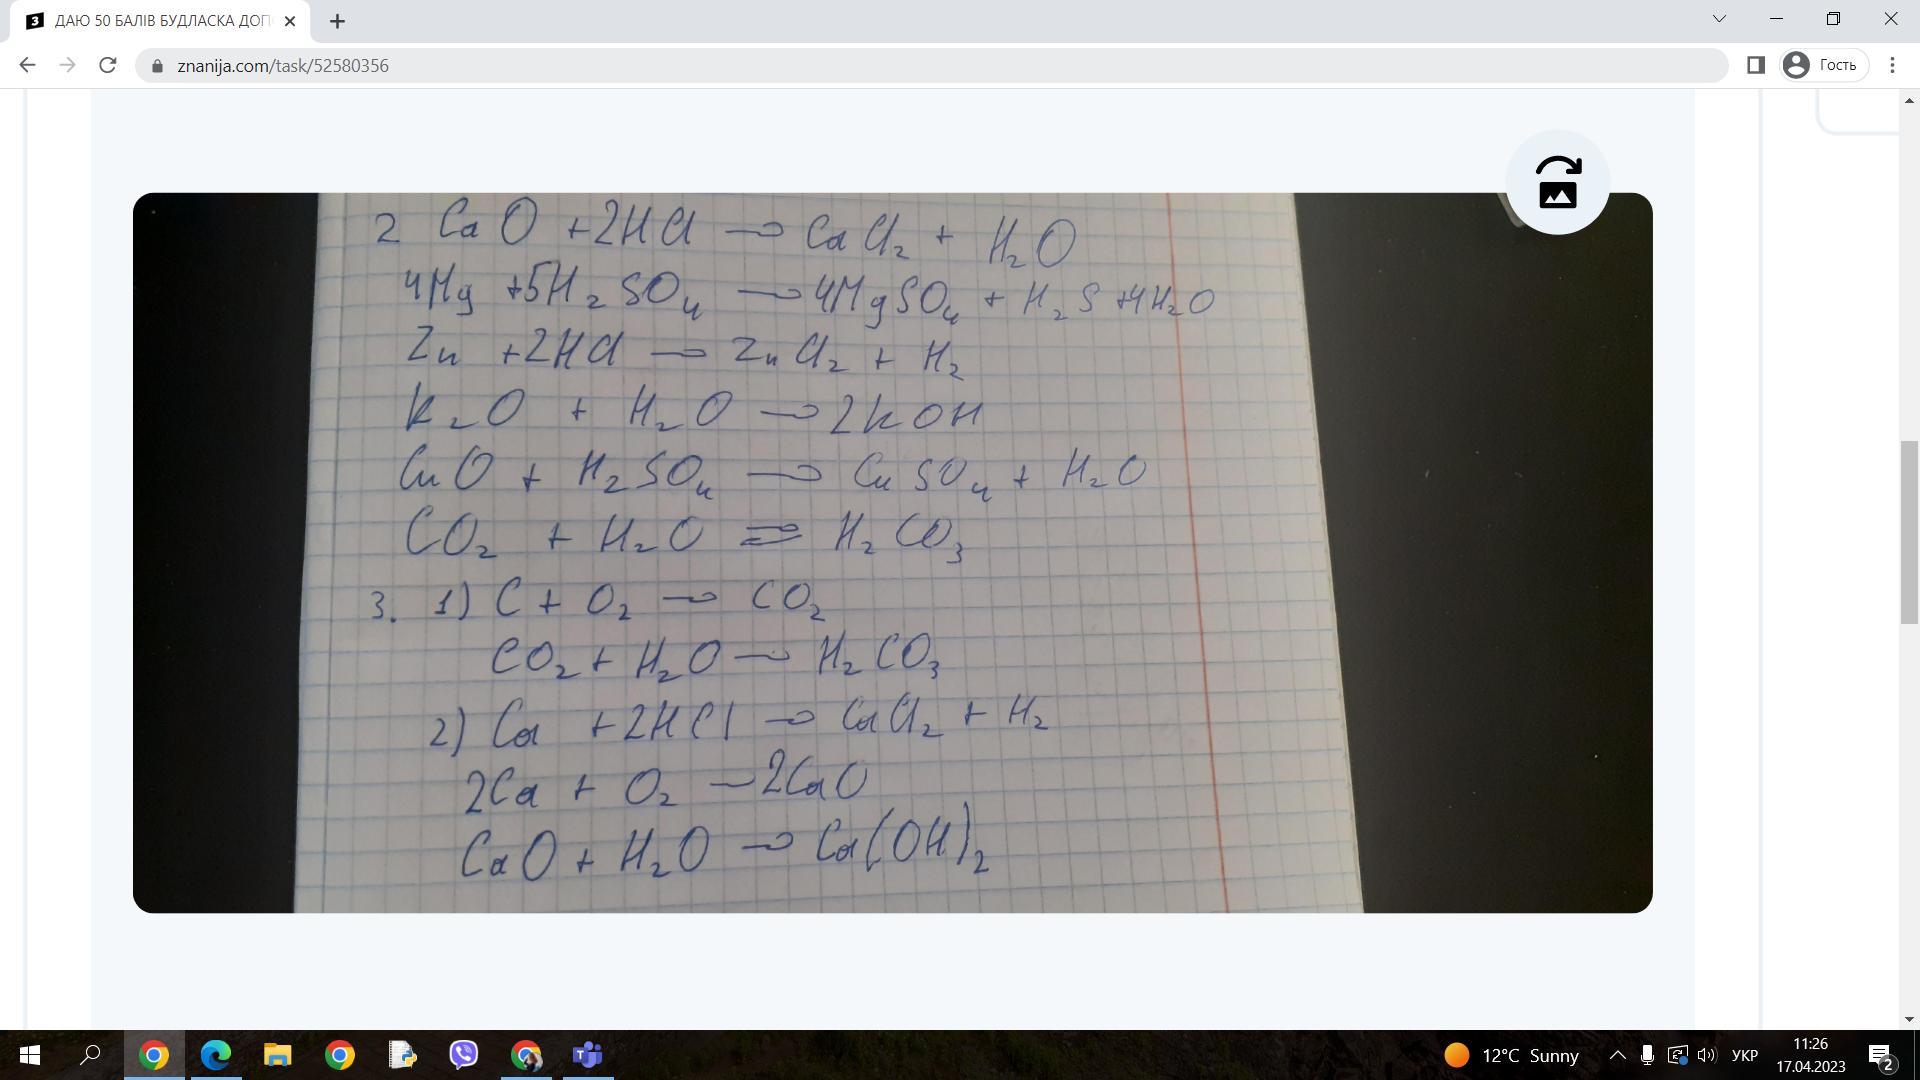 ДАЮ 50 БАЛІВ БУДЛАСКА ДОП
znanija.com/task/52580356
Гость
2 CaO +2HCl → CaCl₂ + H₂O
4Mg +5H₂SO₄ → 4MgSO₄ + H₂S +4H₂O
Zn +2HCl → ZnCl₂ + H₂
K₂O + H₂O → 2KOH
CuO + H₂SO₄ → CuSO₄ + H₂O
CO₂ + H₂O ⇌ H₂CO₃
3. 1) C + O₂ → CO₂
CO₂ + H₂O → H₂CO₃
2) Ca +2HCl → CaCl₂ + H₂
2Ca + O₂ → 2CaO
CaO + H₂O → Ca(OH)₂
12°C Sunny
УКР
11:26
17.04.2023
2